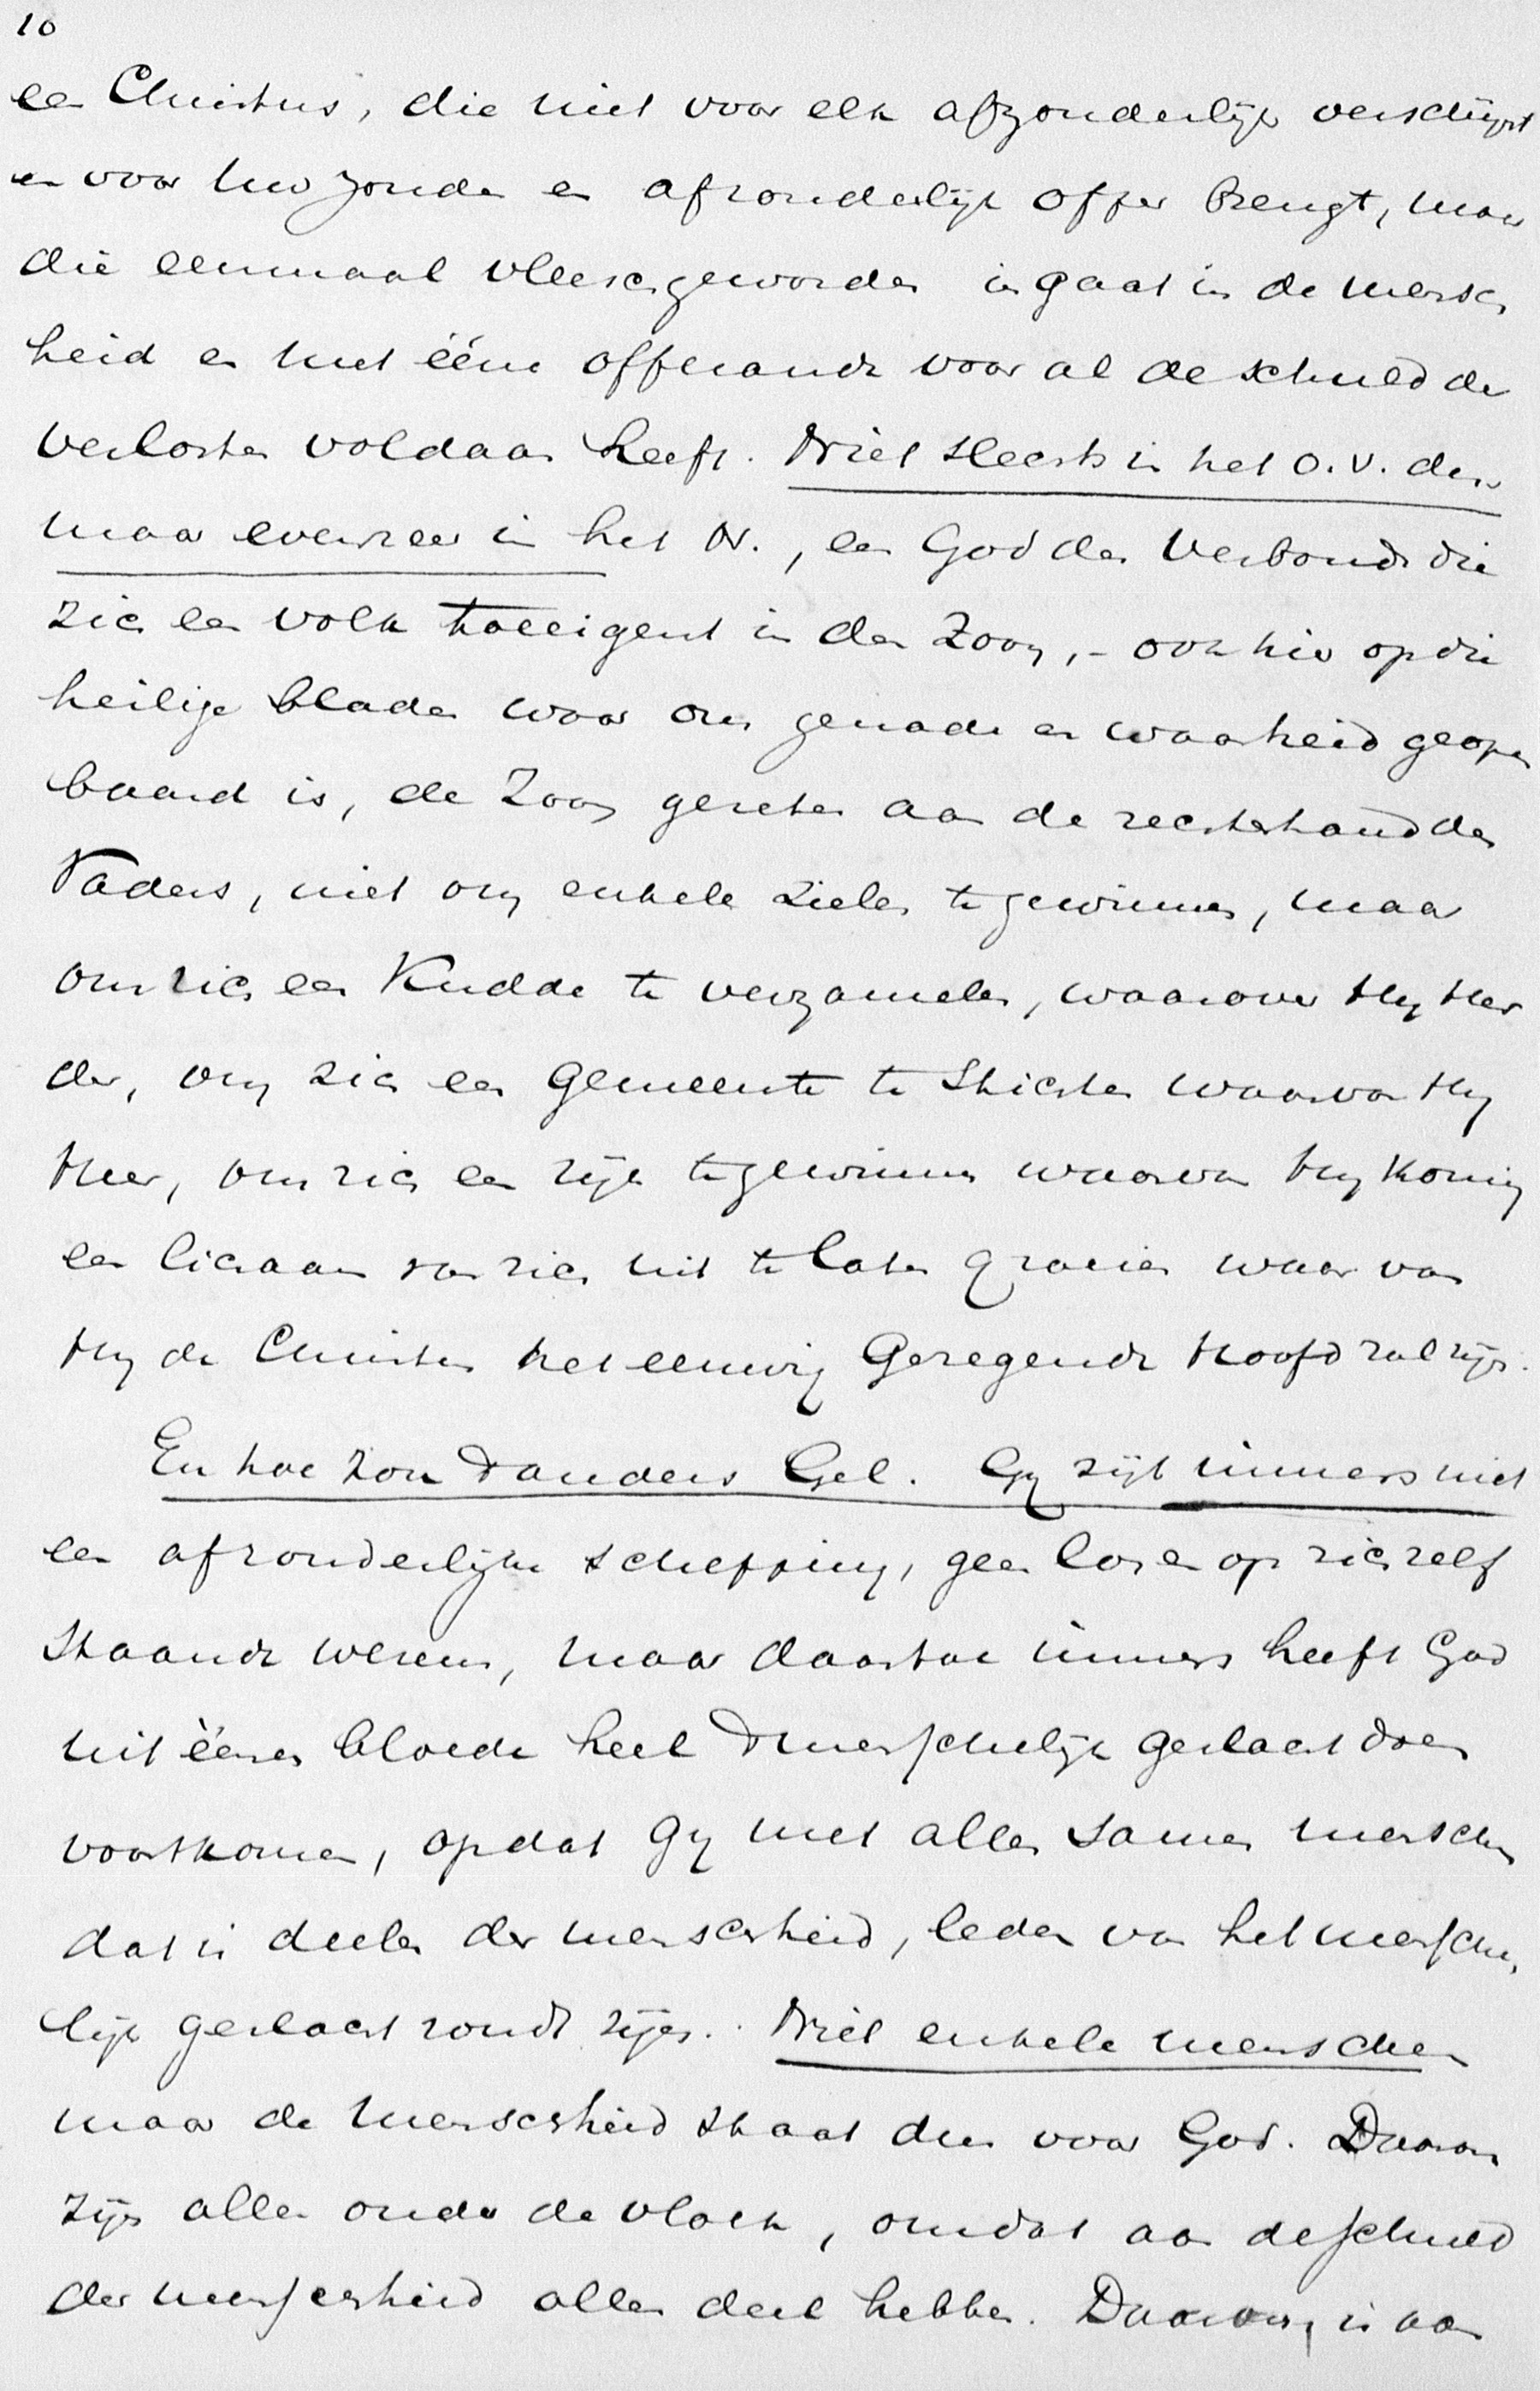 10
een Christus, die niet voor elk afzonderlijk verschijnt
en voor uw zonde een afzonderlijk offer brengt, maar
die eenmaal vleeschgeworden ingaat in de mensch
heid en met ééne offerande voor al de schuld der
verlosten voldaan heeft. Niet slechts in het O.V. dus
maar evenzeer in het N., een God des Verbonds die
zich een volk toeeigent in den Zoon, - ook hier op die
heilige bladen waar ons genade en waarheid geopen
baard is, de Zoon gezeten aan de rechterhand des
Vaders, niet om enkele zielen te gewinnen, maar
om zich een Kudde te verzamelen, waarover Hij Her
der, om zich een Gemeente te stichten waarvan Hij
Heer, om zich een rijk te gewinnen waarvan Hij Koning
een lichaam van zich uit te laten groeien waarvan
Hij de Christus het eeuwig Gezegende Hoofd zal zijn.
En hoe zou 't anders Gel. Gij zijt immers niet
een afzonderlijke schepping, geen los en op zich zelf
staande wezens, maar daartoe immers heeft God
uit éénen bloede heel 't menschelijk geslacht doen
voortkomen, opdat gij met allen samen menschen
dat is deelen der menschheid, leden van het mensche
lijk geslacht zoudt zijn. Niet enkele menschen
maar de menschheid staat dus voor God. Daarom
zijn allen onder de vloek, omdat aan de schuld
der menschheid allen deel hebben. Daarom is aan